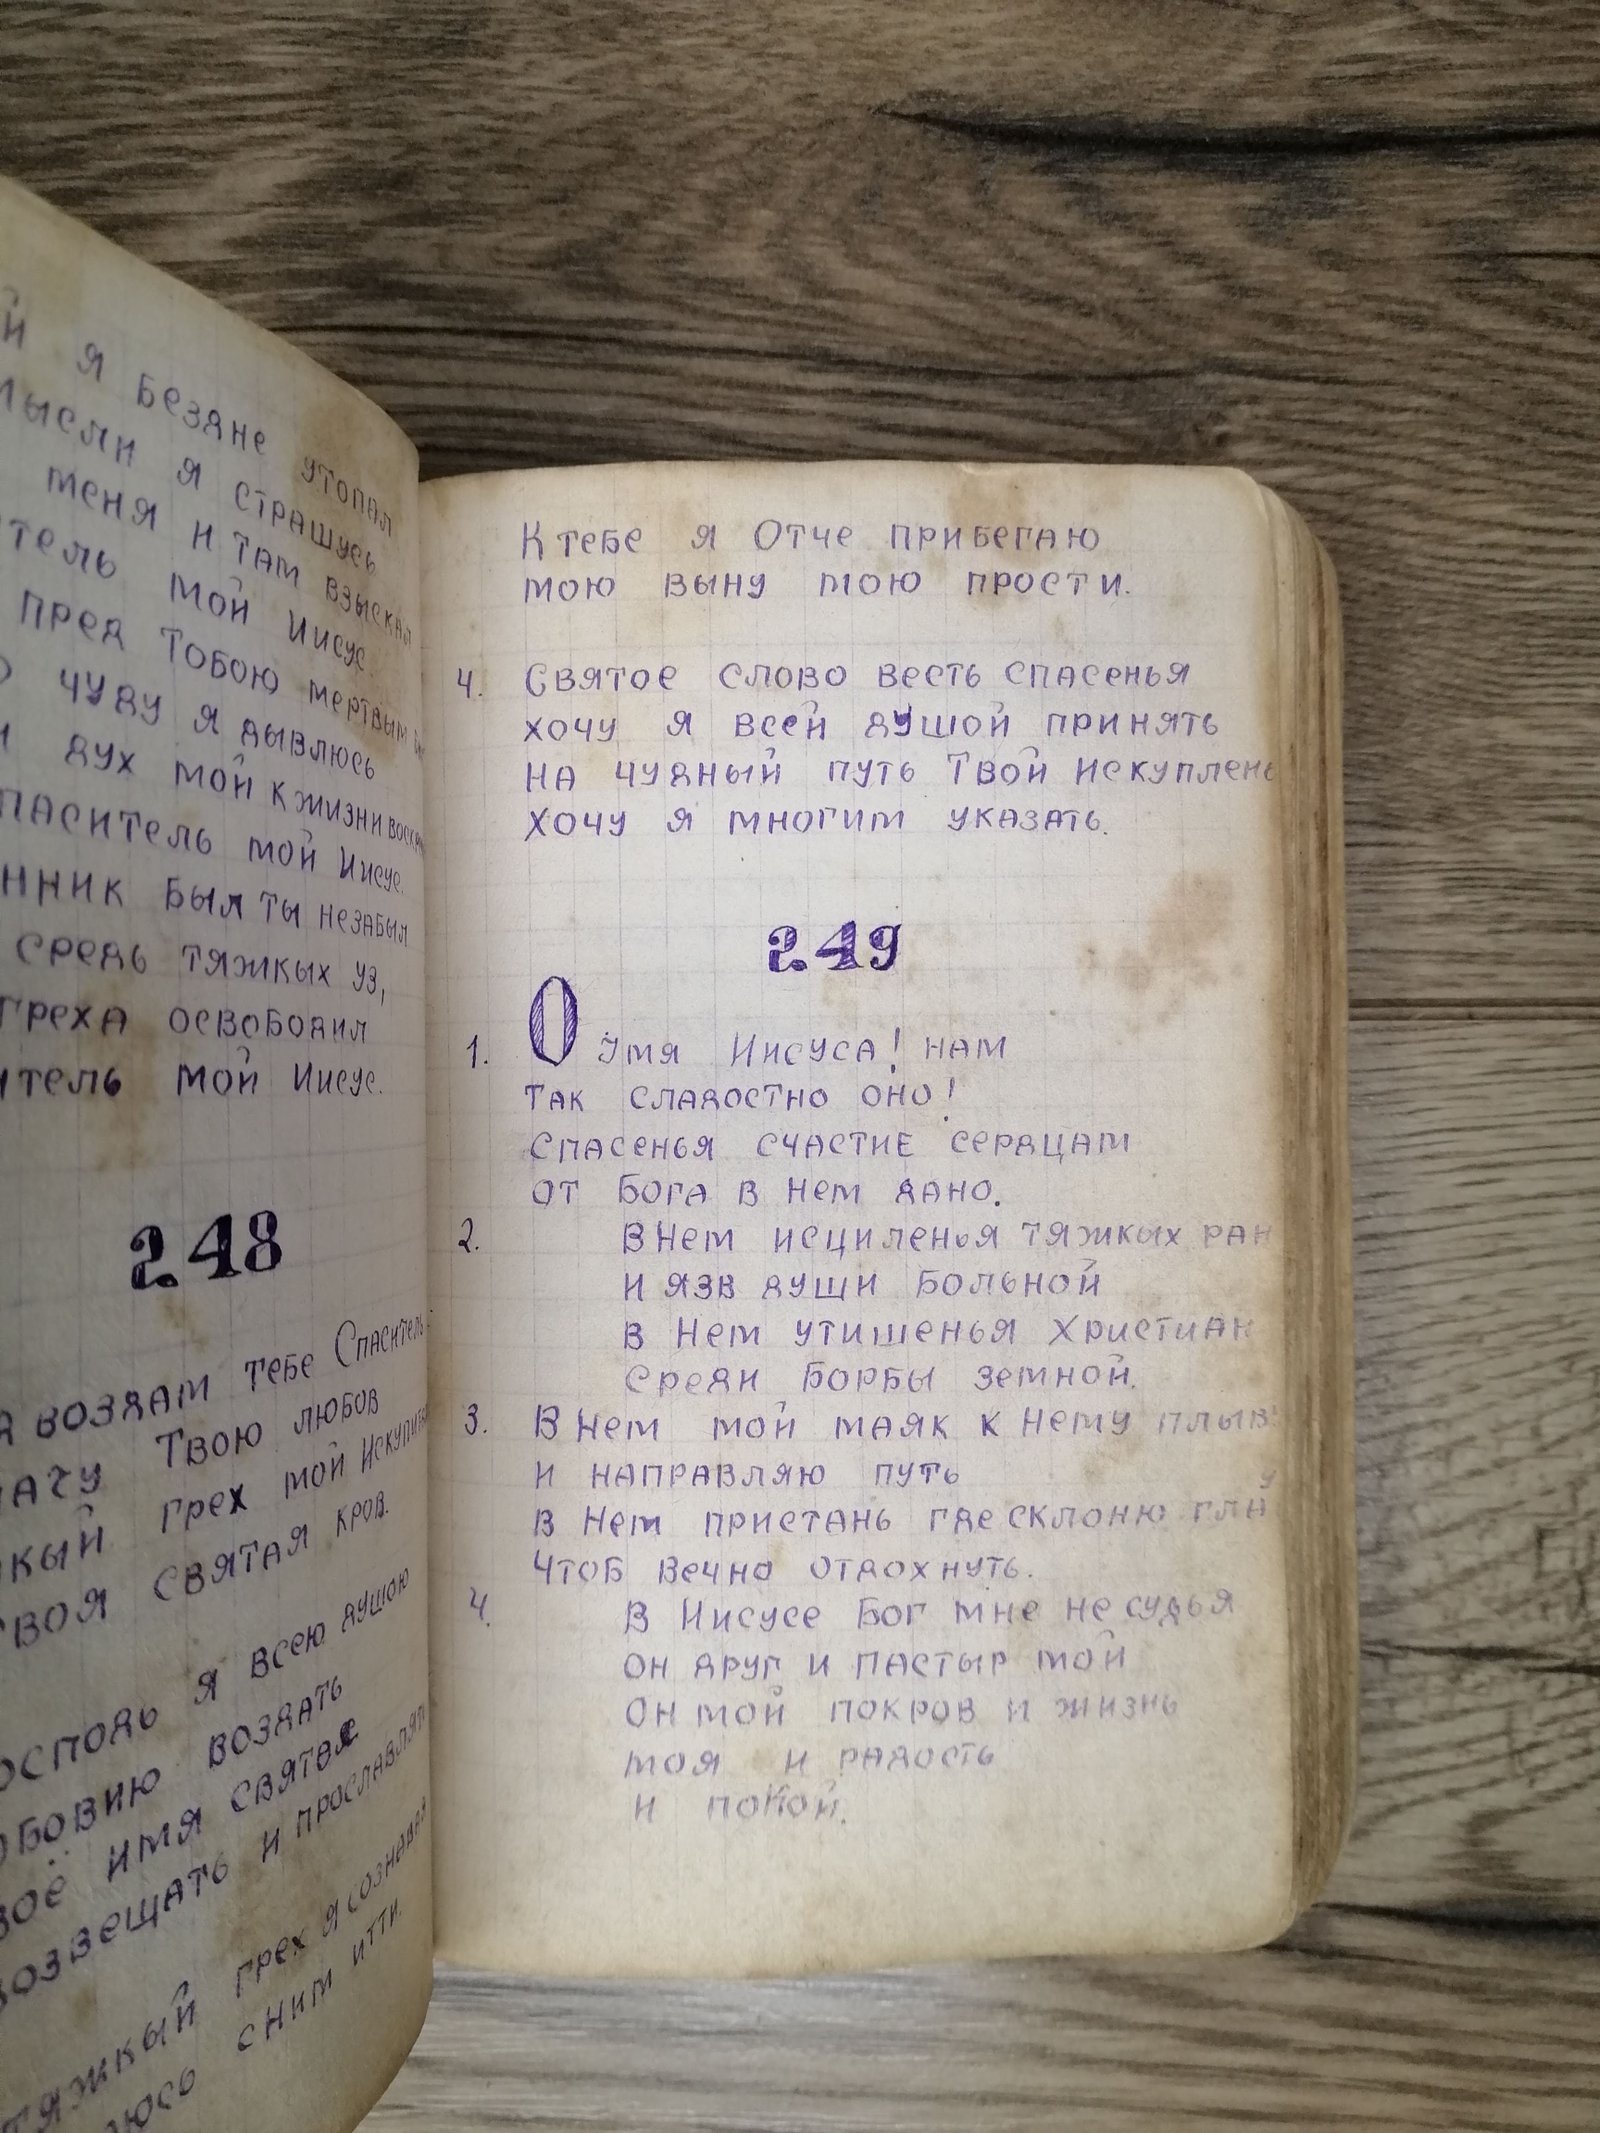 я безяне утопал
мысли я страшусь
меня и там взыскал
мой Иисус
пред Тобою мертвым
чуду я дывлюсь
дух мой к жизни
мой Иисус.
был ты незабыл
средь тяжкых уз,
греха освободил
мой Иисус.
248
воздам тебе Спаситель
Твою любов
грех мой
святая кров.
я всею душою
воздать
имя святое
и прославлять
тяжкый грех я сознаваю
с ним итти.
К тебе я Отче прибегаю
мою выну мою прости.
4. Святое слово весть спасенья
хочу я всей душой принять
на чудный путь Твой искуплень
хочу я многим указать.
249
1. О Имя Иисуса! нам
так сладостно оно!
спасенья счастие сердцам
от Бога в нем дано.
2. В Нем исциленья тяжкых ран
и язв души больной
в Нем утишенья Христиан
среди борбы земной.
3. В Нем мой маяк к Нему плыв
и направляю путь
в Нем пристань где склоню гла
у
чтоб вечно отдохнуть.
4. В Иисусе Бог мне не судья
он друг и пастыр мой
Он мой покров и жизнь
моя и радость
и покой.